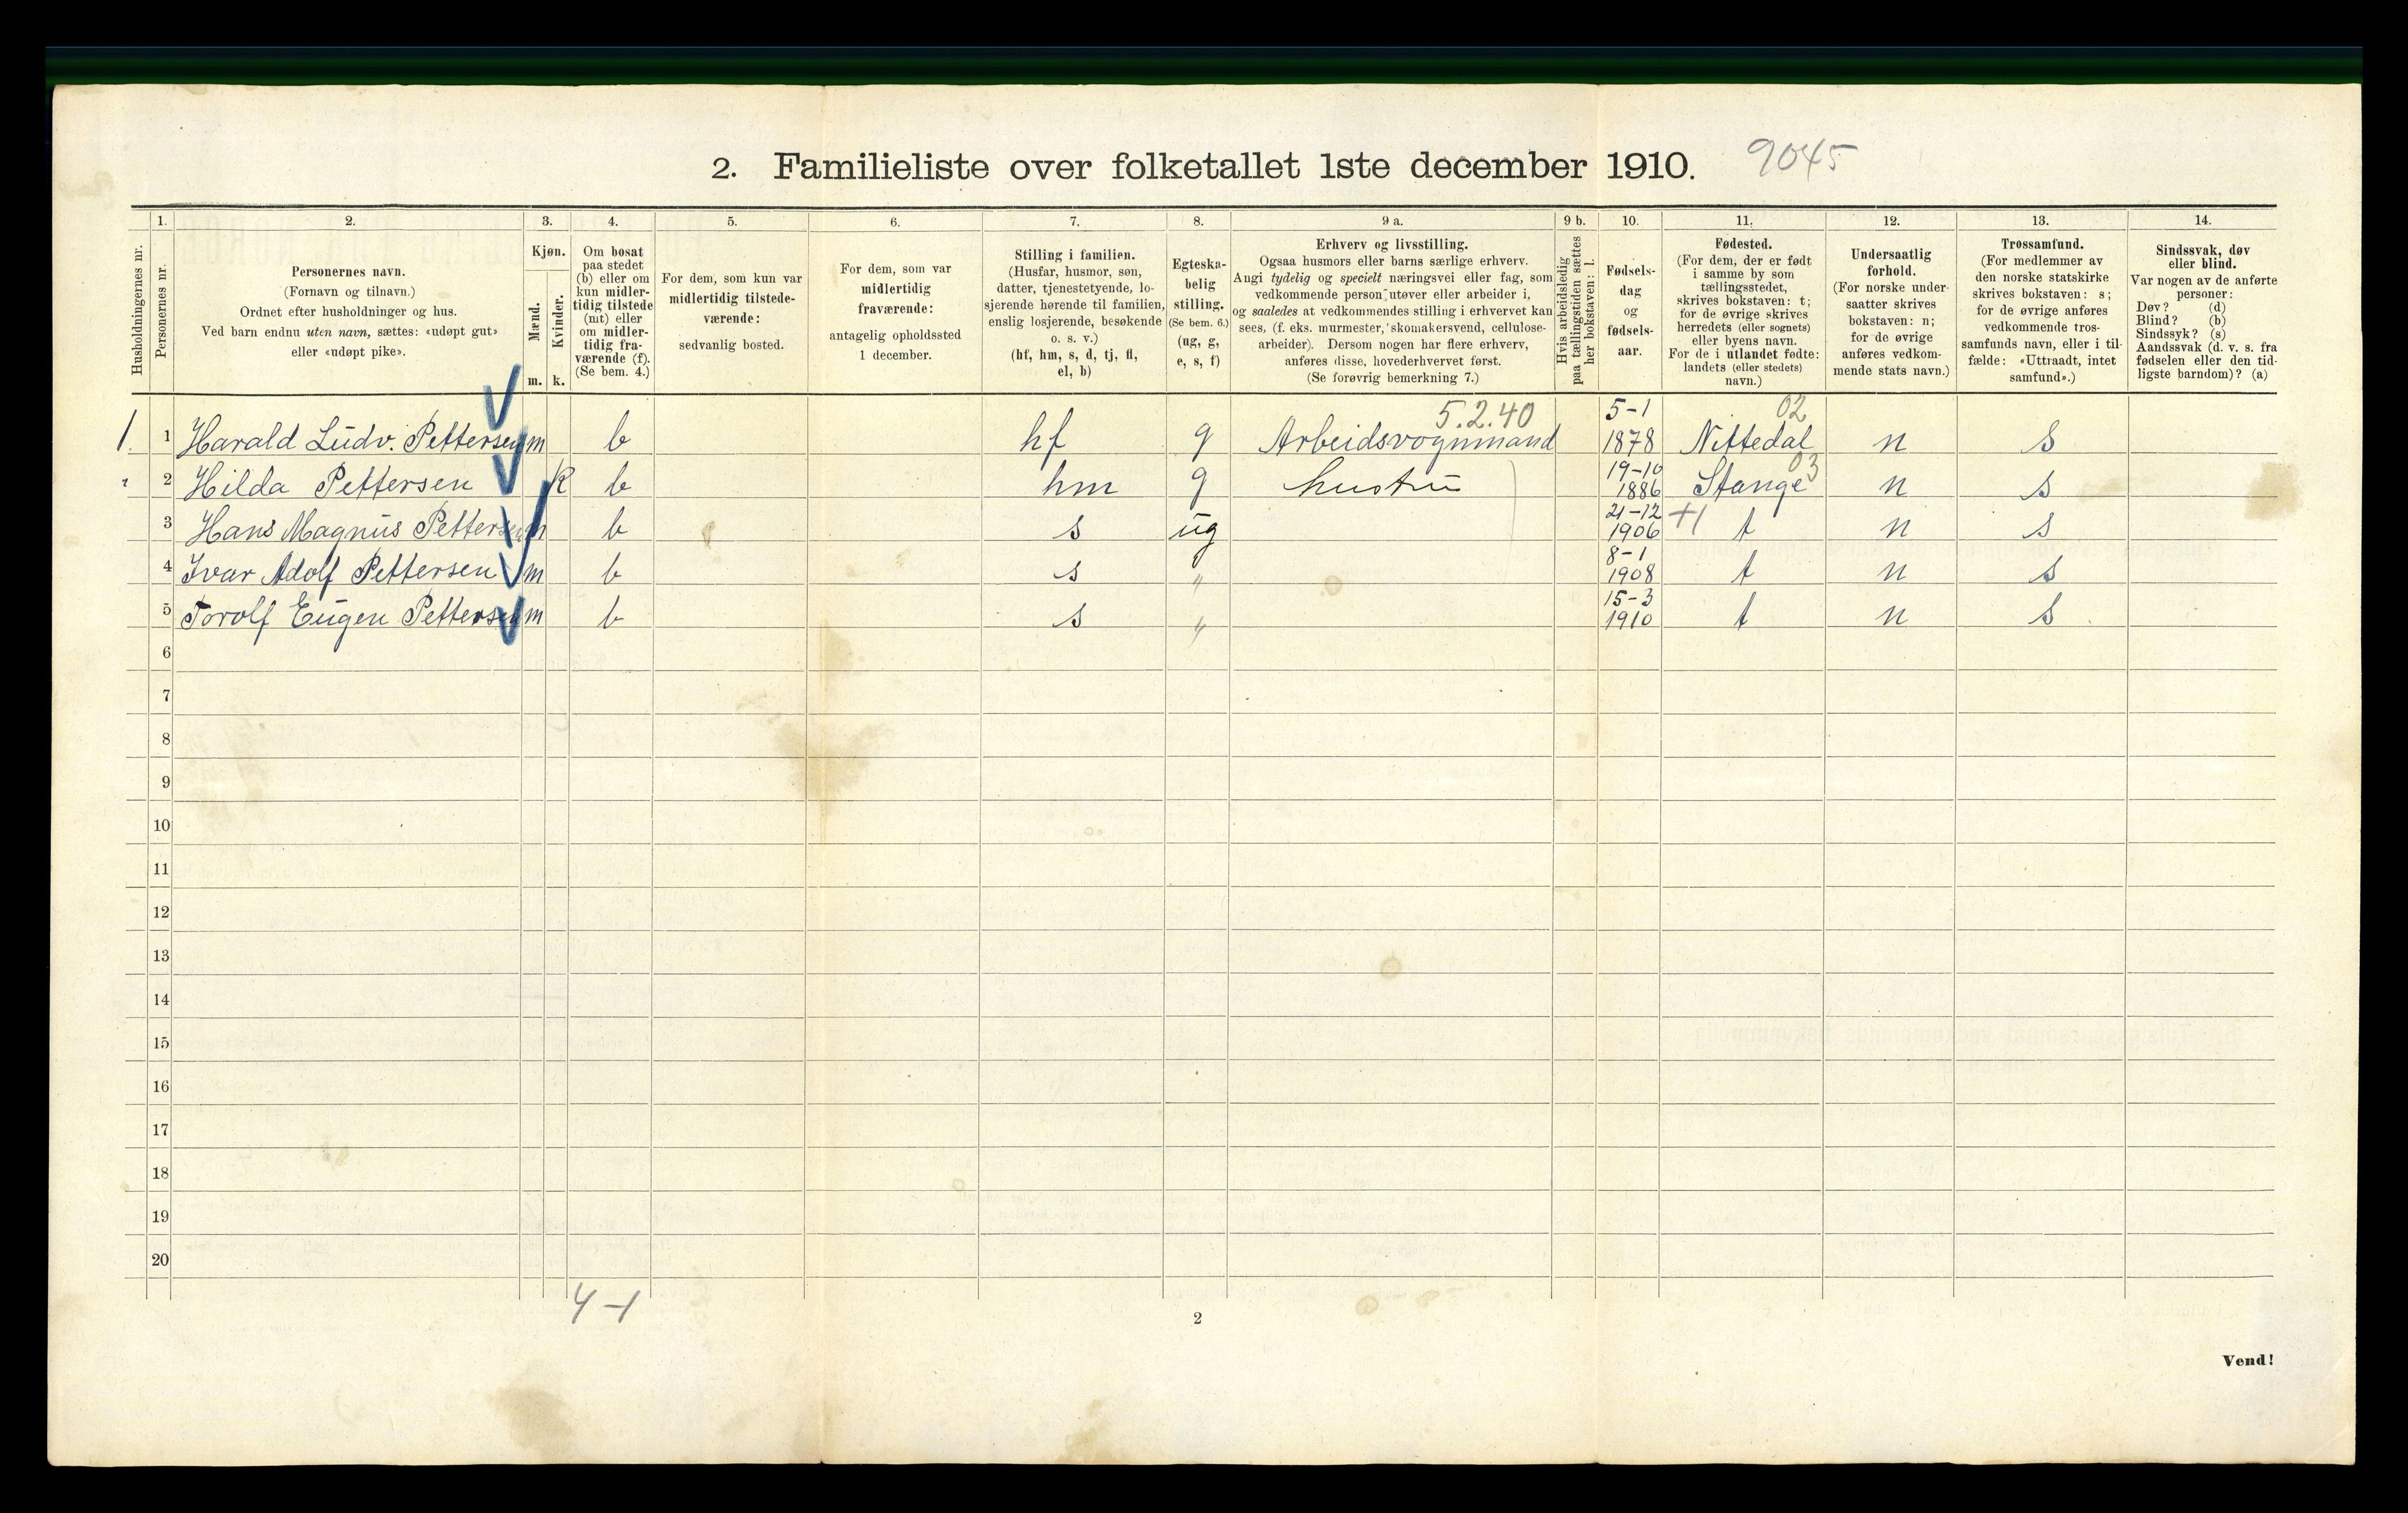 2. Familieliste over folketallet 1ste december 1910. 9045
1. 2. 3. 4. 5. 6. 7. 8. 9 a. 9 b. 10. 11. 12. 13. 14.
Husholdningernes nr.
Personernes nr.
Personernes navn.
(Fornavn og tilnavn.)
Ordnet efter husholdninger og hus.
Ved barn endnu uten navn, sættes: «udøpt gut»
eller «udøpt pike».
Kjøn.
Mænd.
Kvinder.
m. k.
Om bosat
paa stedet
(b) eller om
kun midler-
tidig tilstede
(mt) eller
om midler-
tidig fra-
værende (f).
(Se bem. 4.)
For dem, som kun var
midlertidig tilstede-
værende:
sedvanlig bosted.
For dem, som var
midlertidig
fraværende:
antagelig opholdssted
1 december.
Stilling i familien.
(Husfar, husmor, søn,
datter, tjenestetyende, lo-
sjerende hørende til familien,
enslig losjerende, besøkende
o. s. v.)
(hf, hm, s, d, tj, fl,
el, b)
Egteska-
belig
stilling.
(Se bem. 6.)
(ug, g,
e, s, f)
Erhverv og livsstilling.
Ogsaa husmors eller barns særlige erhverv.
Angi tydelig og specielt næringsvei eller fag, som
vedkommende person utøver eller arbeider i,
og saaledes at vedkommendes stilling i erhvervet kan
sees, (f. eks. murmester, skomakersvend, cellulose-
arbeider). Dersom nogen har flere erhverv,
anføres disse, hovederhvervet først.
(Se forøvrig bemerkning 7.)
Hvis arbeidsledig
paa tællingstiden sættes
her bokstaven: l.
Fødsels-
dag
og
fødsels-
aar.
Fødested.
(For dem, der er født
i samme by som
tællingsstedet,
skrives bokstaven: t;
for de øvrige skrives
herredets (eller sognets)
eller byens navn.
For de i utlandet fødte:
landets (eller stedets)
navn.)
Undersaatlig
forhold.
(For norske under-
saatter skrives
bokstaven: n;
for de øvrige
anføres vedkom-
mende stats navn.)
Trossamfund.
(For medlemmer av
den norske statskirke
skrives bokstaven: s;
for de øvrige anføres
vedkommende tros-
samfunds navn, eller i til-
fælde: «Uttraadt, intet
samfund».)
Sindssvak, døv
eller blind.
Var nogen av de anførte
personer:
Døv? (d)
Blind? (b)
Sindssyk? (s)
Aandssvak (d. v. s. fra
fødselen eller den tid-
ligste barndom)? (a)
5.2.40 5-1 02
1. 1 Harald Ludv. Pettersen m b hf g Arbeidsvognmand 1878 Nittedal n s
19-10 03
2 Hilda Pettersen k b hm g hustru 1886 Stange n s
21-12
3 Hans Magnus Pettersen m b s ug 1906 +1 t n s
8-1
4 Ivar Adolf Pettersen m b s " 1908 t n s
15-3
5 Torolf Eugen Pettersen m b s " 1910 t n s
6
7
8
9
10
11
12
13
14
15
16
17
18
19
20
4-1
2
Vend!